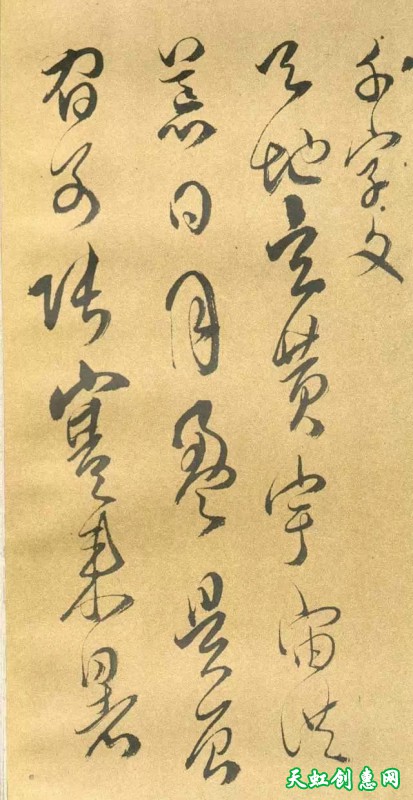 千字文
天地玄黄宇宙洪
荒日月盈昃辰
宿列張寒来暑
天虹创惠网